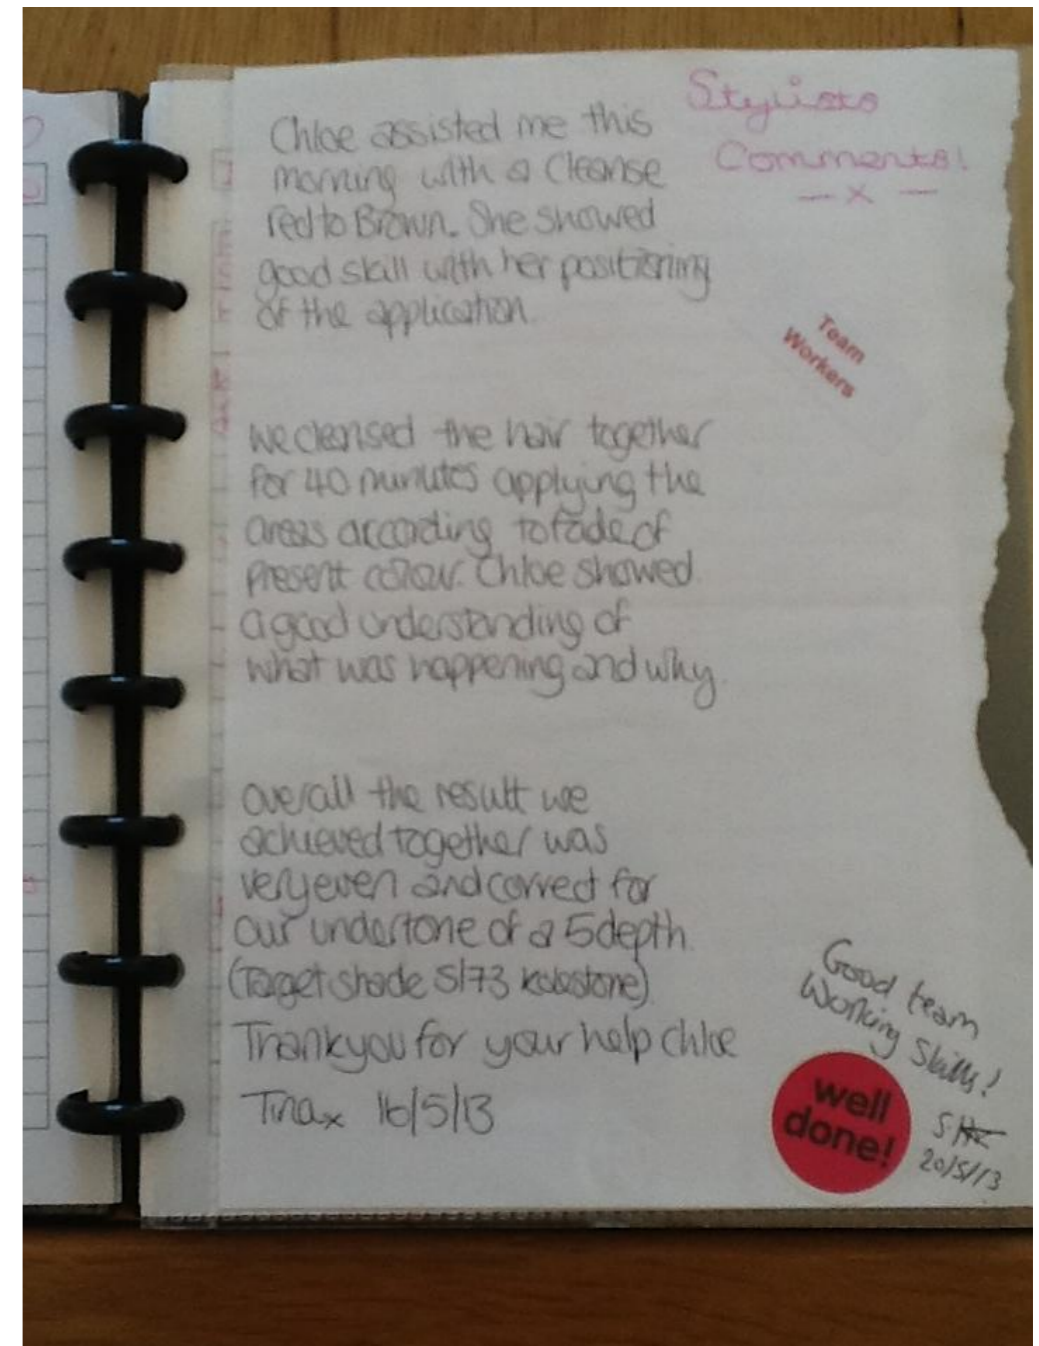 Stylists
Comments!
— x —
Chloe assisted me this
morning with a Cleanse
red to Brown. She showed
good skill with her positioning
of the application.
Team
Workers
We cleansed the hair together
for 40 minutes applying the
areas according to fade of
present colour. Chloe showed
a good understanding of
what was happening and why.
overall the result we
achieved together was
very even and correct for
our undertone of a 5 depth.
(Target shade 5/73 kolestone)
Thankyou for your help chloe
Tina x 16/5/13
Good team
Working Skills!
well
done!
20/5/13